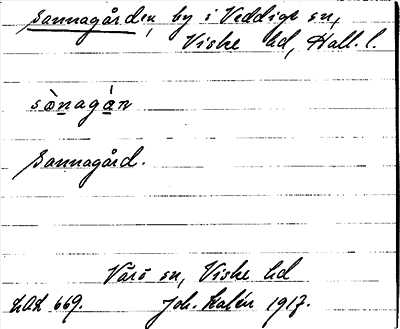 Sannagården, by i Veddige sn,
Viske hd, Hall. l.
sònagán
Sannagård.
Värö sn, Viske hd
LAL 669. Joh. Kalén 1917.